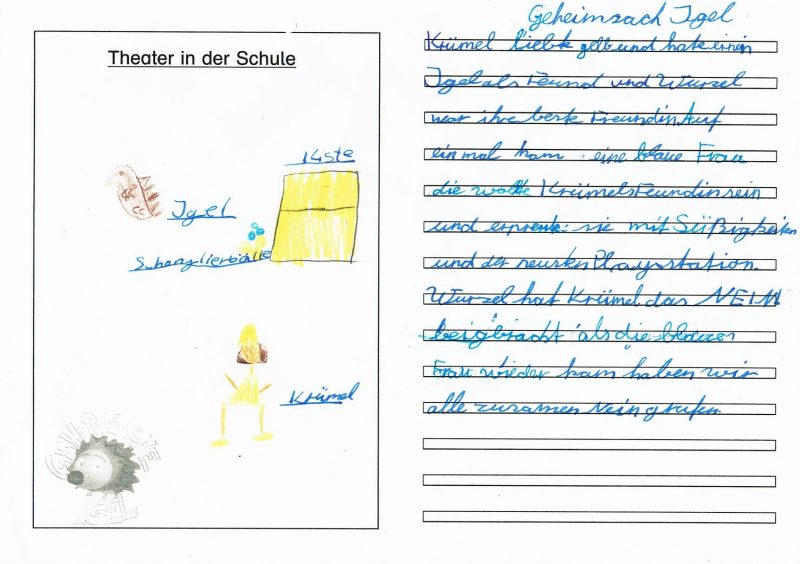 Theater in der Schule
Kiste
Igel
Schongllerbälle
Krümel
Geheimsach Igel
Krümel liebte gelb und hate einen
Igel als Feund und Wurzel
war ihre beste Freundin Auf
ein mal kam eine blaue Frau
die wollte Krümels Feundin sein
und erprente sie mit Süßigkeiten
und der neusten Playsstation.
Wurzel hat Krümel das NEIN
beigbracht als die blauer
Frau wieder kam haben wir
alle zuzamen Nein grufen.